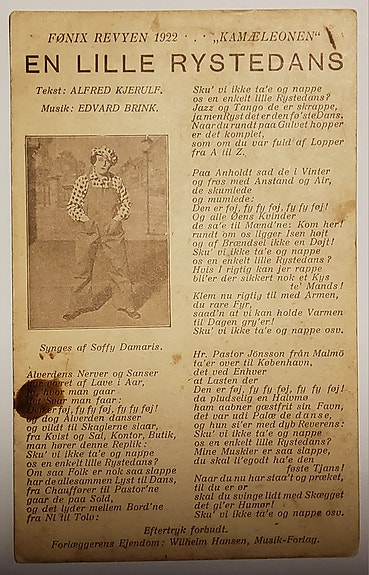 FØNIX REVYEN 1922 · . · „KAMÆLEONEN“
EN LILLE RYSTEDANS
Tekst: ALFRED KJERULF.
Musik: EDVARD BRINK.
Synges af Soffy Damaris.
Alverdens Nerver og Sanser
har været af Lave i Aar,
hvor man gaar
Svar man faar:
Den er føj, fy fy føj, fy fy føj!
og dog Alverden danser
og vildt til Skaglerne slaar,
fra Kvist og Sal, Kontor, Butik,
man hører denne Replik:
Sku' vi ikke ta'e og nappe
os en enkelt lille Rystedans?
Om saa Folk er nok saa slappe
har de allesammen Lyst til Dans,
fra Chauffører til Pastor'ne
gaar de paa Sold,
og det lyder mellem Bord'ne
fra Ni til Tolv:
Sku' vi ikke ta'e og nappe
os en enkelt lille Rystedans?
Jazz og Tango de er skrappe,
ja men Ryst det er den fø'ste Dans.
Naar du rundt paa Gulvet hopper
er det komplet,
som om du var fuld af Lopper
fra A til Z.
Paa Anholt sad de i Vinter
og frøs med Anstand og Air,
de skumlede
og mumlede:
Den er føj, fy fy føj, fy fy føj!
Og alle Øens Kvinder
de sa'e til Mænd'ne: Kom her!
rundt om os ligger Isen højt
og af Brændsel ikke en Døjt!
Sku' vi ikke ta'e og nappe
os en enkelt lille Rystedans?
Hvis I rigtig kan jer rappe
bli'er der sikkert nok et Kys
te' Mands!
Klem nu rigtig til med Armen,
du rare Fyr,
saad'n at vi kan holde Varmen
til Dagen gry'er!
Sku' vi ikke ta'e og nappe osv.
Hr. Pastor Jönsson från Malmö
ta'er over til København,
det ved Enhver
at Lasten der
Den er føj, fy fy føj, fy fy føj!
da pludselig en Halvmø
ham aabner gæstfrit sin Favn,
det var udi Palæ de danse,
og hun si'er med dyb Reverens:
Sku' vi ikke ta'e og nappe
os en enkelt lille Rystedans?
Mine Muskler er saa slappe,
du skal li'egodt ha'e den
føste Tjans!
Naar du nu har staa't og præket,
til du er ør
skal du svinge lidt med Skægget
det gi'er Humør!
Sku' vi ikke ta'e og nappe osv.
Eftertryk forbudt.
Forlæggerens Ejendom: Wilhelm Hansen, Musik-Forlag.